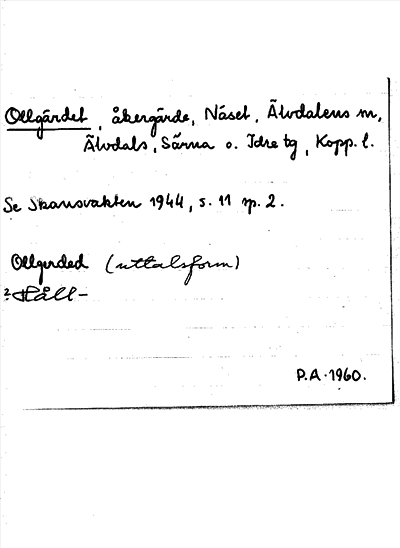 Ollgärdet, åkergärde, Näset, Älvdalens m,
Älvdals, Särna o. Idre tg, Kopp. l.
Se Skansvakten 1944, s. 11 sp. 2.
Ollgerded (uttalsform)
? Håll-
P.A. 1960.